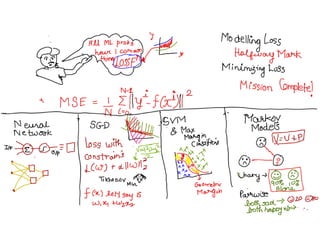 All ML probs
have 1 common
thing
LOSS
Modelling Loss
Halfway Mark
Minimizing Loss
Mission (omplete)
MSE = 1/N Σ || y^i - f(x^i) ||^2
N-1
i=0
Neural
Network
I/P
O/P
SGD
loss with
constraint
L(w) + α||w||^2
f(x) let's say is
SVM
& Max
Margin
Classifiers
Geometric
Margin
Markov
Models
V=U+P
Unary
90%
10%
Alone
Pairwise
both sad
both happy